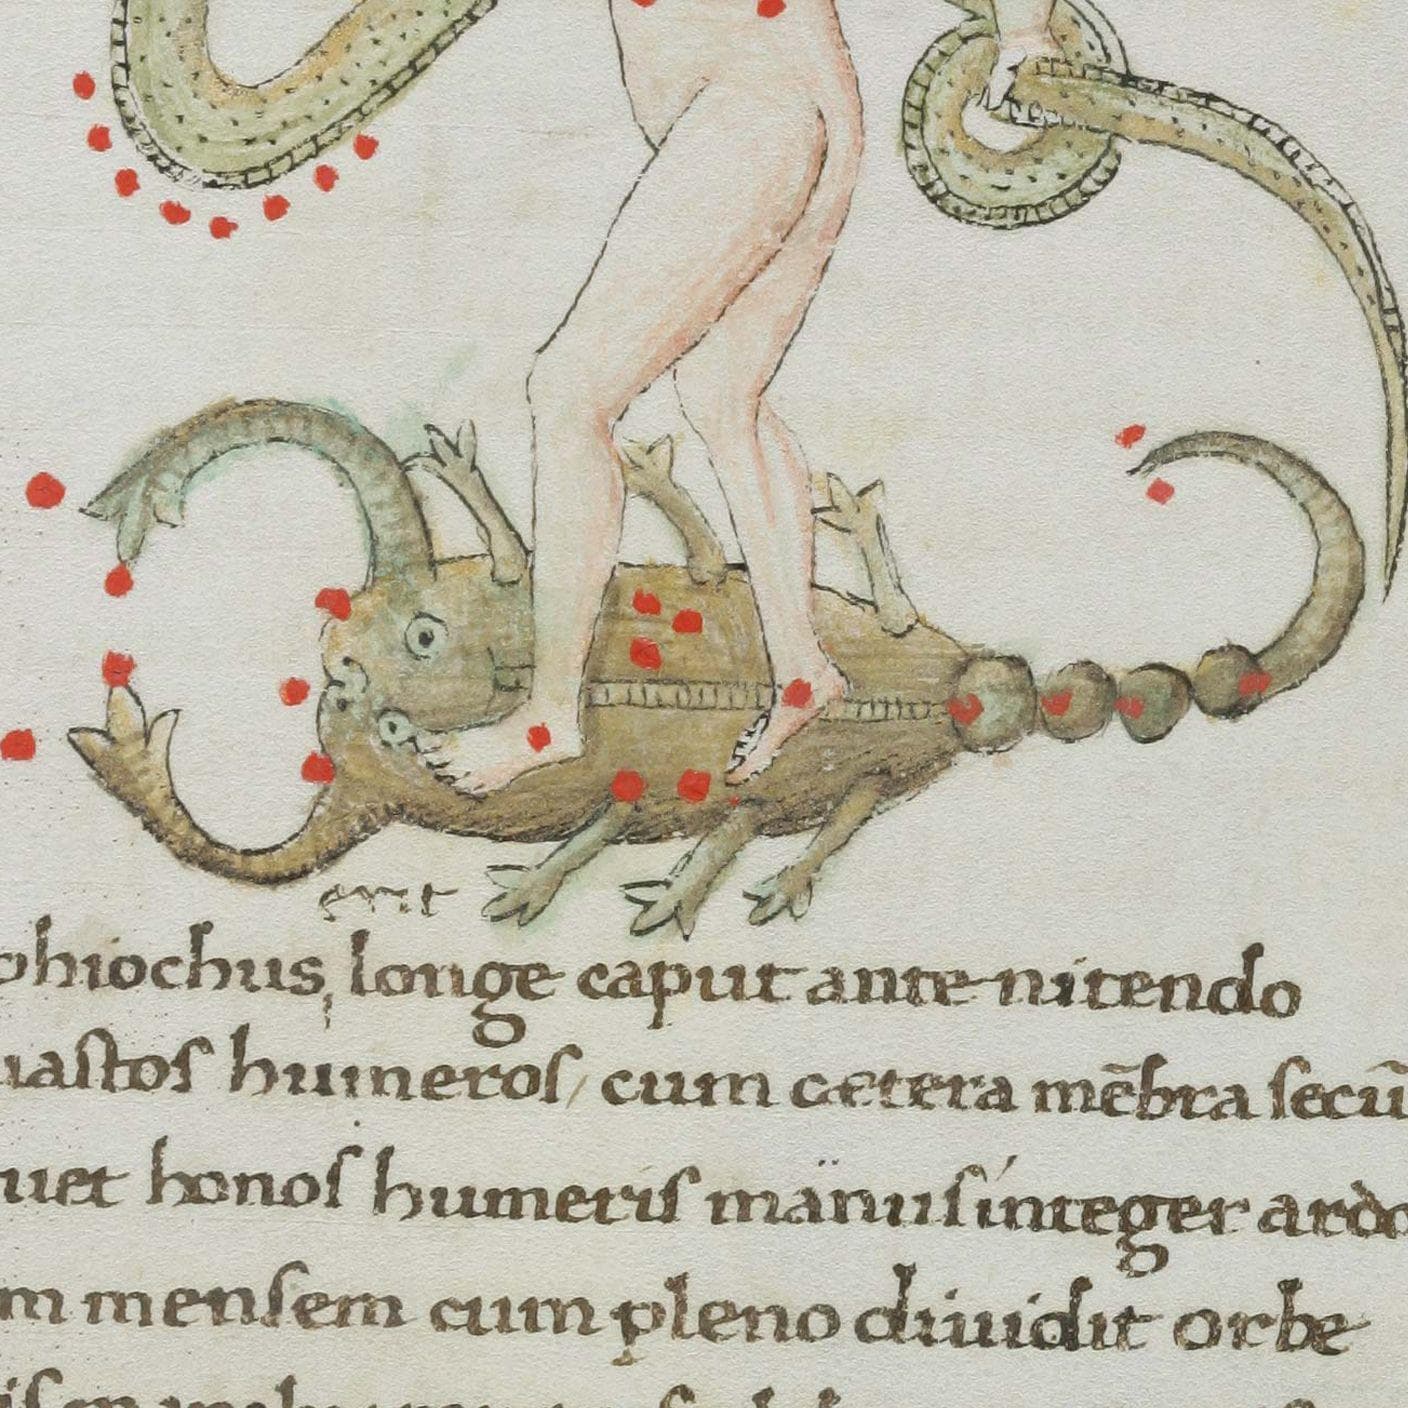 erit
phiochus, longe caput ante nitendo
uastos humeros, cum cætera mēbra secū
uet honos humeris manus integer ardo
m mensem cum pleno diuidit orbe